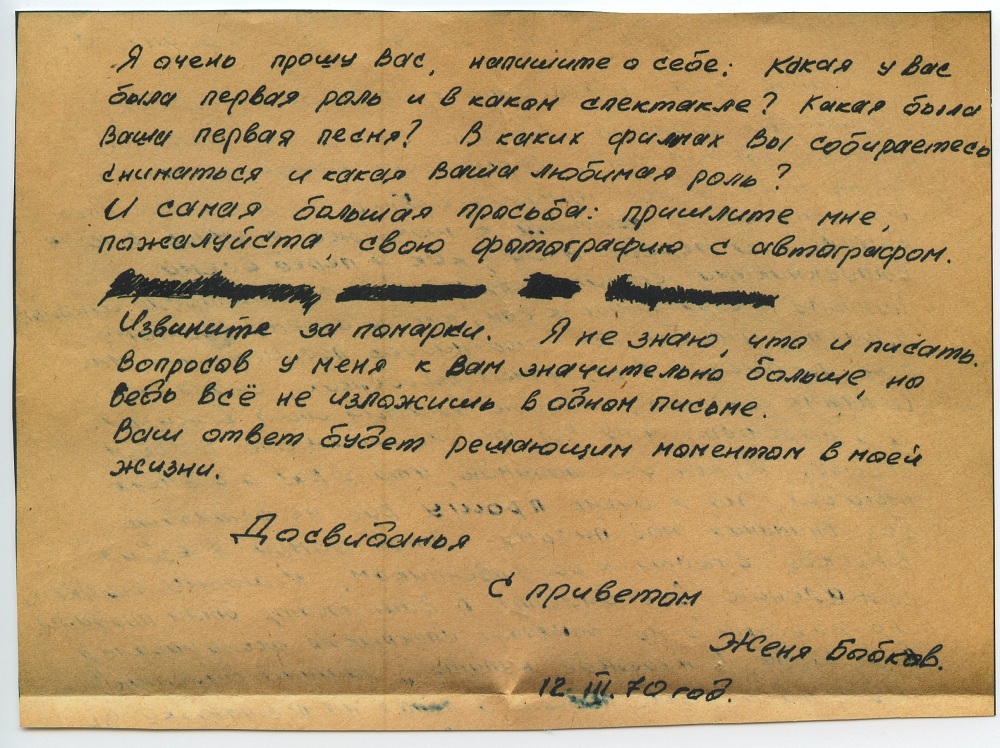 Я очень прошу Вас, напишите о себе: Какая у Вас
была первая роль и в каком спектакле? Какая была
Ваша первая песня? В каких филмах Вы собираетесь
сниматься и какая Ваша любимая роль?
И самая большая просьба: пришлите мне,
пожалуйста, свою фотографию с автографом.
Извините за помарки. Я не знаю, что и писать.
Вопросов у меня к Вам значительно больше, но
ведь всё не изложишь в одном письме.
Ваш ответ будет решающим моментом в моей
жизни.
Досвиданья
С приветом
Женя Бобков.
12. III. 70 год.